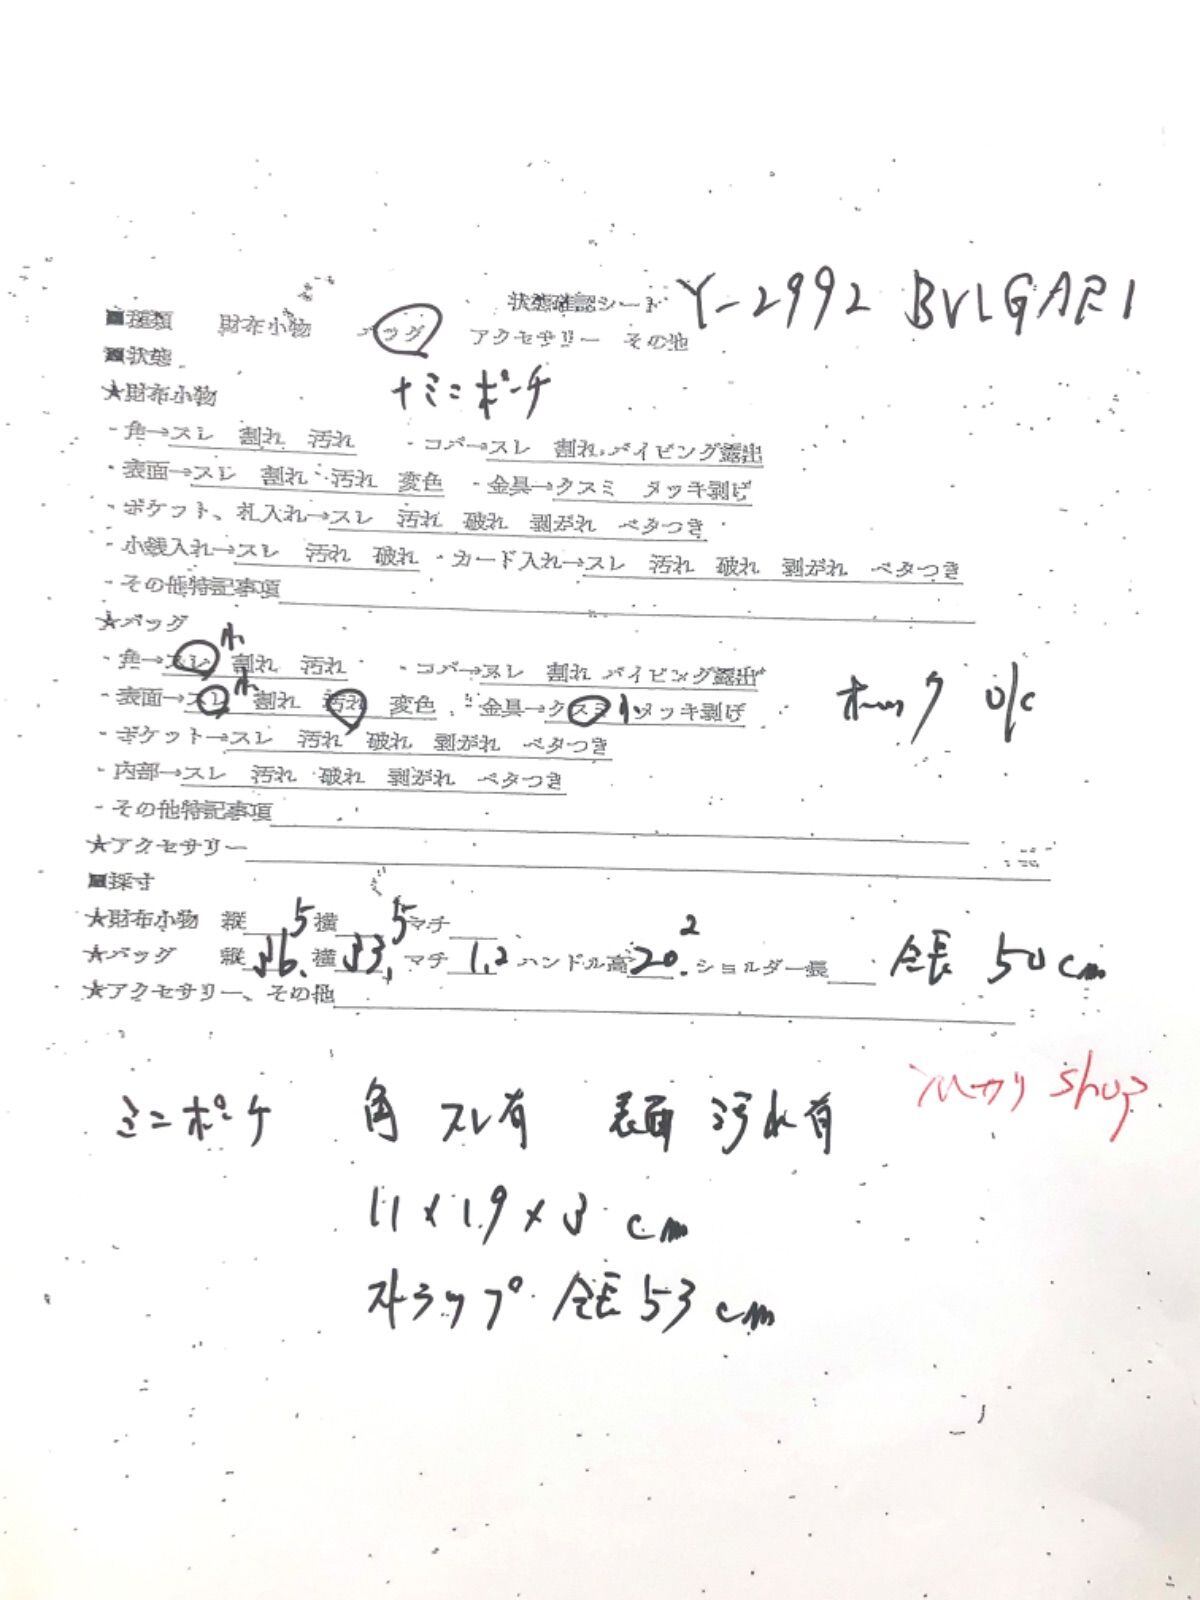 状態確認シート Y-2992 BVLGARI
■種類 財布小物 バッグ アクセサリー その他
■状態
+ミニポーチ
★財布小物
・角→スレ 割れ 汚れ ・コバ→スレ 割れ パイピング露出
・表面→スレ 割れ 汚れ 変色 ・金具→クスミ メッキ剥げ
・ポケット、札入れ→スレ 汚れ 破れ 剥がれ ベタつき
・小銭入れ→スレ 汚れ 破れ ・カード入れ→スレ 汚れ 破れ 剥がれ ベタつき
・その他特記事項
★バッグ
・角→スレ小 割れ 汚れ ・コバ→スレ 割れ パイピング露出
・表面→スレ小 割れ 汚れ 変色 ・金具→クスミ小 メッキ剥げ ホック o/c
・ポケット→スレ 汚れ 破れ 剥がれ ベタつき
・内部→スレ 汚れ 破れ 剥がれ ベタつき
・その他特記事項
★アクセサリー
■採寸
★財布小物 縦 横 マチ
★バッグ 縦36.5 横33.5 マチ 12 ハンドル高20.2 ショルダー長 全長 50cm
★アクセサリー、その他
メルカリ shop
ミニポーチ 角 スレ有 表面 汚れ有
11×19×3 cm
ストラップ 全長53cm